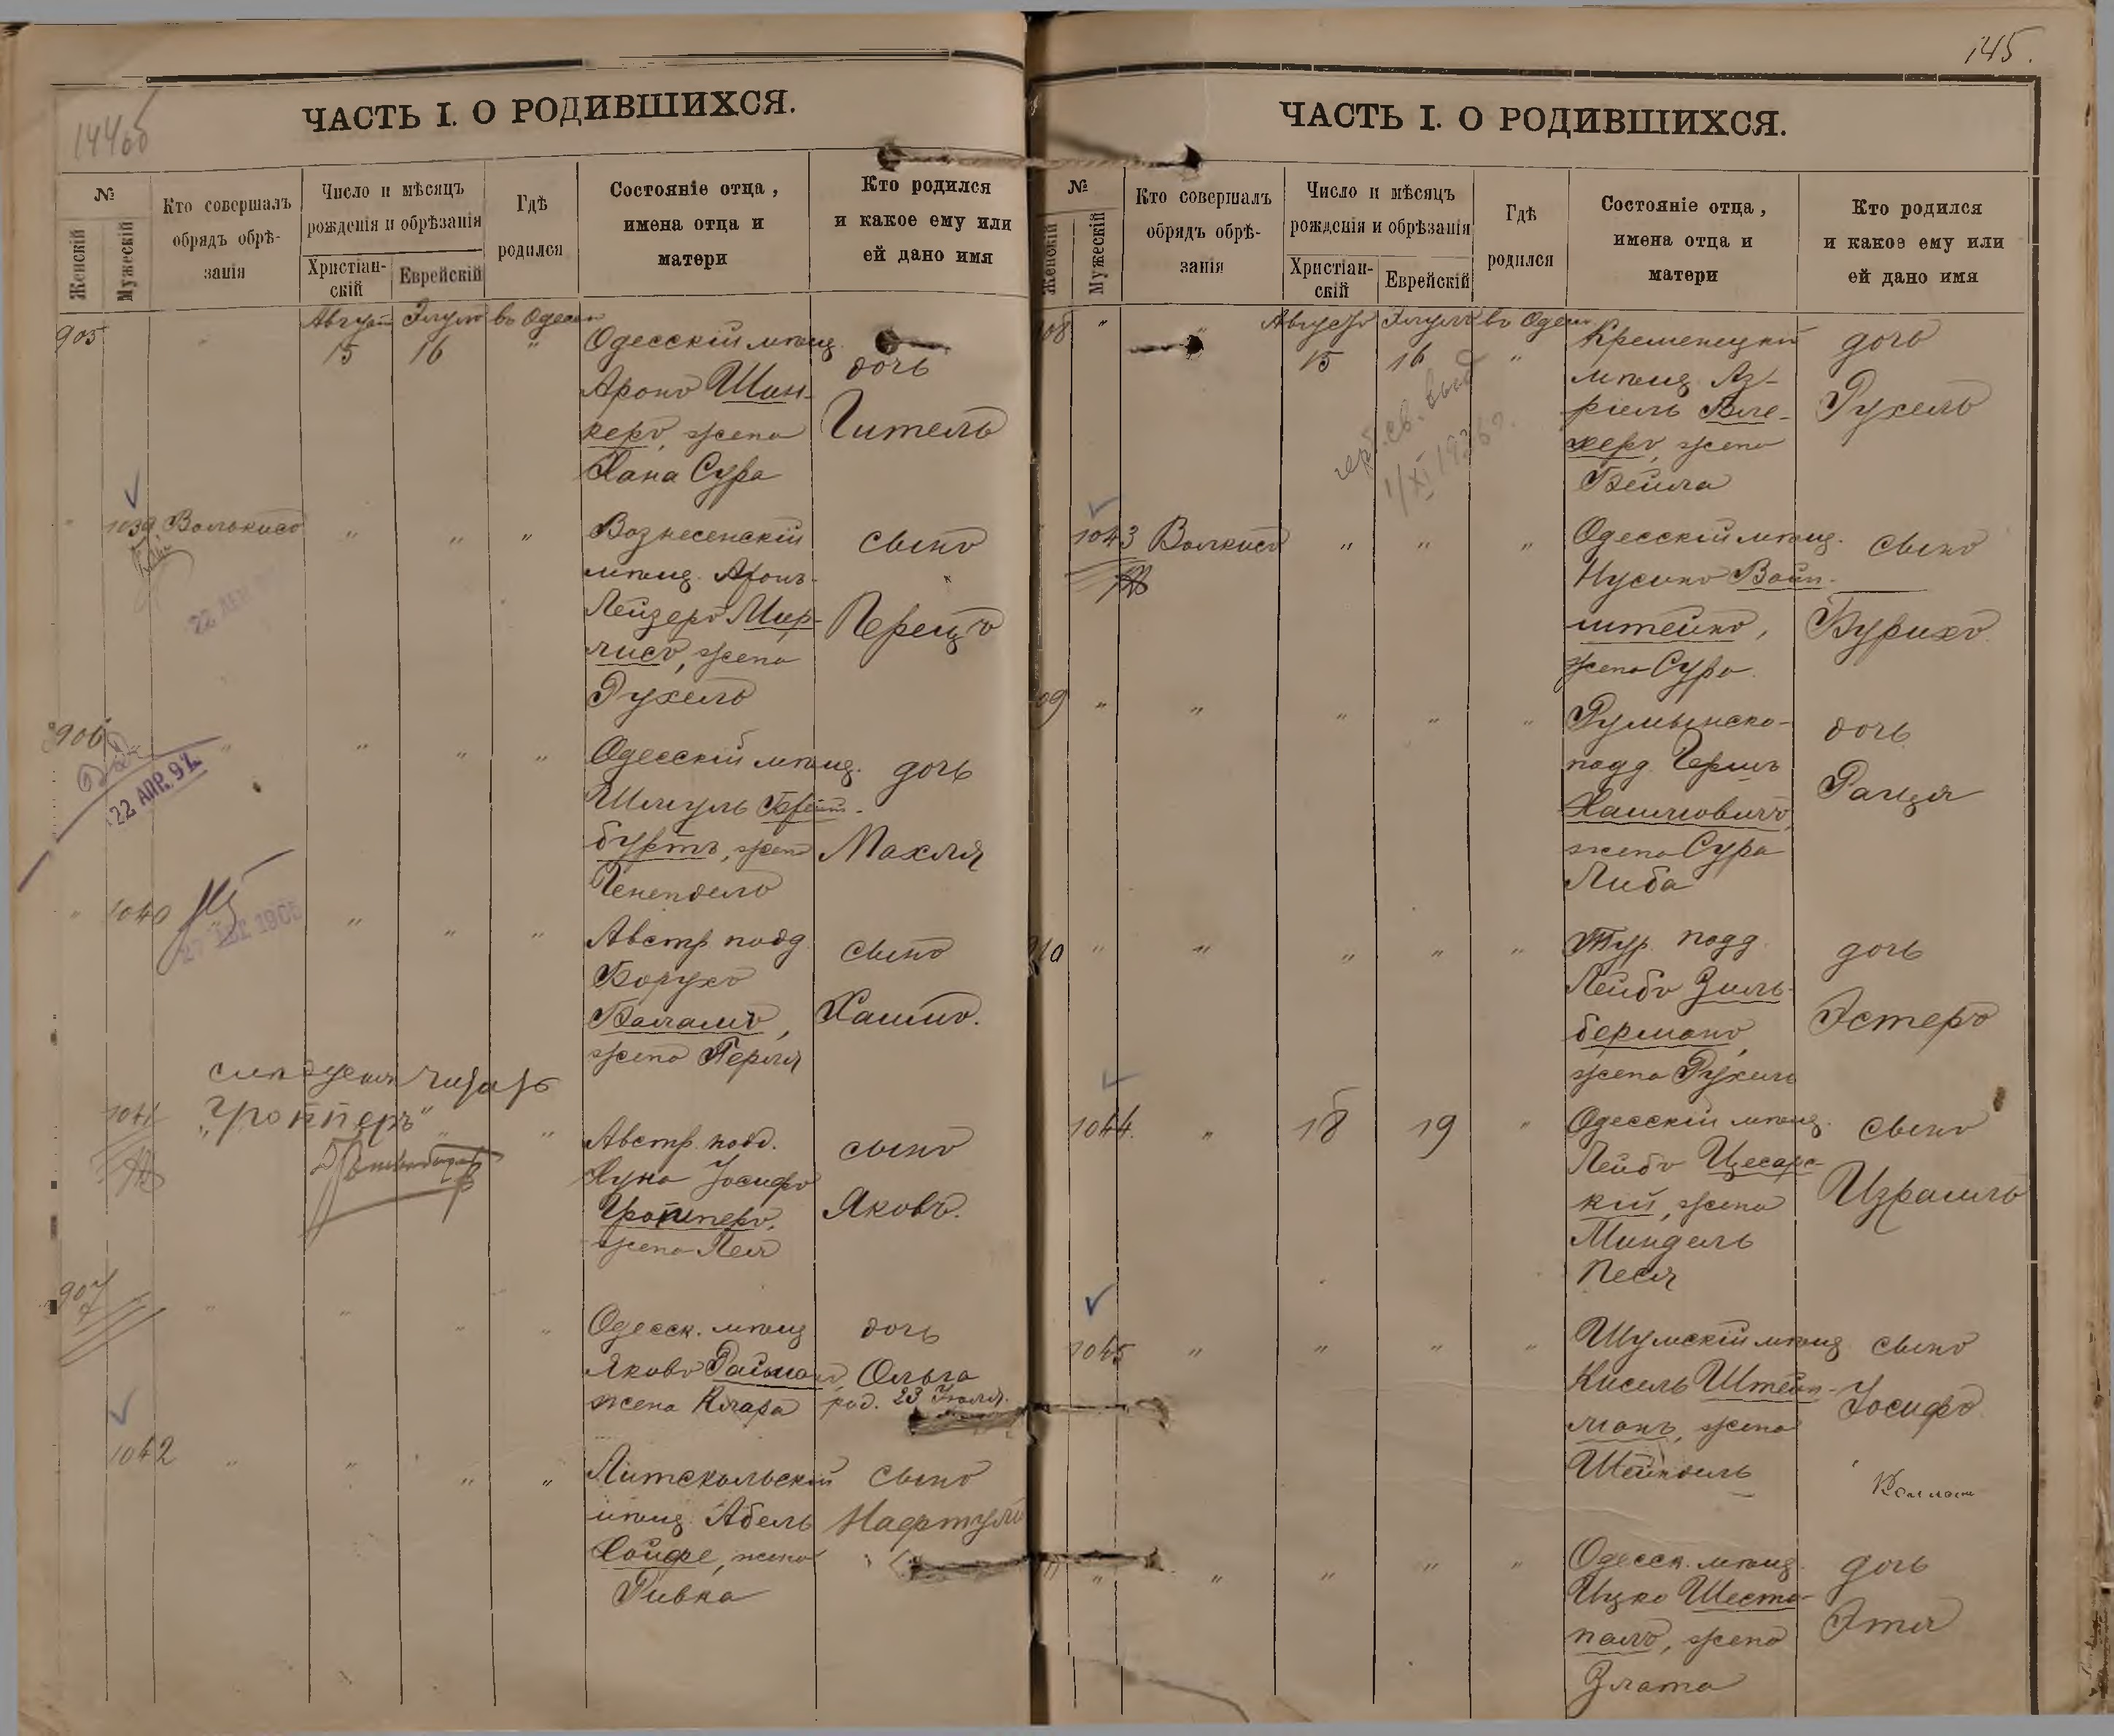 144об
ЧАСТЬ I. О РОДИВШИХСЯ.
№
Женскій
Мужескій
Кто совершалъ
обрядъ обрѣ-
занія
Число и мѣсяцъ
рожденія и обрѣзанія
Христіан-
скій
Еврейскій
Гдѣ
родился
Состояніе отца,
имена отца и
матери
Кто родился
и какое ему или
ей дано имя
905 " Августъ Элулъ въ Одессѣ
15 16 "
Одесскій мѣщ.
Аронъ Шин-
керъ, жена
Хана Сура
дочь
Гитель
" 1039 Волькисъ " " "
22
Вознесенскій
мѣщ. Аронъ-
Лейзеръ Мир-
лисъ, жена
Рухель
сынъ
Перецъ
906 " " " "
22 АПР. 97
Одесскій мѣщ.
Шмуль
бургъ, жена
дочь
Махля
" 1040 " " "
27 1905
Австр. подд.
Борухъ
Баламъ,
жена Перля
сынъ
Хаимъ.
слѣдуетъ читать
1041 „Гротперъ" " "
Австр. подд.
Іосифъ
жена Лея
сынъ
Яковъ.
907 " " " "
Одесск. мѣщ.
Яковъ
жена Клара
дочь
Ольга
род. 23 Іюля.
1042 " " " "
мѣщ. Абель
Хойфе, жена
Ривка
сынъ
Нафтули
145.
ЧАСТЬ I. О РОДИВШИХСЯ.
№
Женскій
Мужескій
Кто совершалъ
обрядъ обрѣ-
занія
Число и мѣсяцъ
рожденія и обрѣзанія
Христіан-
скій
Еврейскій
Гдѣ
родился
Состояніе отца,
имена отца и
матери
Кто родился
и какое ему или
ей дано имя
908 " " Августъ Элулъ въ Одессѣ
15 16 "
св. выд
1/XI 1936 г.
Кременецкій
мѣщ. Аз-
ріель Бле-
херъ, жена
Бейла
дочь
Рухель
1043 Волькисъ " " "
Одесскій мѣщ.
Нусинъ Вайн-
штейнъ,
жена Сура
сынъ
Бурихъ
09 " " " " "
Румынско-
подд. Гершъ
Хаимовичъ,
жена Сура
Либа
дочь
Ранця
910 " " " " "
Тур. подд.
Лейбъ Зиль-
берманъ,
жена Рухель
дочь
Эстеръ
1044. " 18 19 "
Одесскій мѣщ.
Лейбъ Цесарс-
кій, жена
Миндель
Песя
сынъ
Израиль
1045 " " " "
Шумскій мѣщ.
Кисель Штейн-
манъ, жена
Шейндель
сынъ
Іосифъ
" " " " "
Одесск. мѣщ.
Ицко Шесто-
палъ, жена
Злата
дочь
Этя